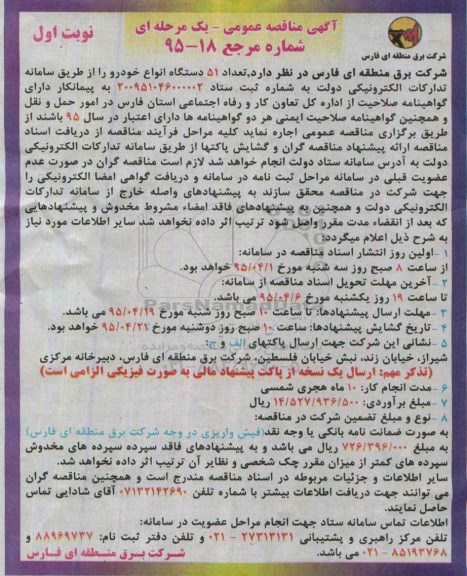 آگهی مناقصه عمومی - یک مرحله ای
نوبت اول
شماره مرجع ۱۸-۹۵
شرکت برق منطقه ای فارس
شرکت برق منطقه ای فارس در نظر دارد،تعداد ۵۱ دستگاه انواع خودرو را از طریق سامانه
تدارکات الکترونیکی دولت به شماره ثبت ستاد ۲۰۰۹۵۱۰۴۶۰۰۰۰۰۲ به پیمانکار دارای
گواهینامه صلاحیت از اداره کل تعاون کار و رفاه اجتماعی استان فارس در امور حمل و نقل
و همچنین گواهینامه صلاحیت ایمنی هر دو گواهینامه ها دارای اعتبار در سال ۹۵ باشند از
طریق برگزاری مناقصه عمومی اجاره نماید کلیه مراحل فرآیند مناقصه از دریافت اسناد
مناقصه ارائه پیشنهاد مناقصه گران و گشایش پاکتها از طریق سامانه تدارکات الکترونیکی
دولت به آدرس سامانه ستاد دولت انجام خواهد شد لازم است مناقصه گران در صورت عدم
عضویت قبلی در سامانه مراحل ثبت نامه در سامانه و دریافت گواهی امضا الکترونیکی را
جهت شرکت در مناقصه محقق سازند به پیشنهادهای واصله خارج از سامانه تدارکات
الکترونیکی دولت و همچنین به پیشنهادهای فاقد امضاء مشروط مخدوش و پیشنهادهایی
که بعد از انقضاء مدت مقرر واصل شود ترتیب اثر داده نخواهد شد سایر اطلاعات مورد نیاز
به شرح ذیل اعلام میگردد:
۱ -اولین روز انتشار اسناد مناقصه در سامانه:
از ساعت ۸ صبح روز سه شنبه مورخ ۹۵/۰۴/۱ خواهد بود.
۲ -آخرین مهلت تحویل اسناد مناقصه از سامانه:
تا ساعت ۱۹ روز یکشنبه مورخ ۹۵/۰۴/۶ می باشد.
۳ -مهلت ارسال پیشنهادها: تا ساعت ۱۰ صبح روز شنبه مورخ ۹۵/۰۴/۱۹ می باشد.
۴ -تاریخ گشایش پیشنهادها: ساعت ۱۰ صبح روز دوشنبه مورخ ۹۵/۰۴/۲۱ خواهد بود.
۵ -نشانی این شرکت جهت ارسال پاکتهای الف و ج:
شیراز، خیابان زند، نبش خیابان فلسطین، شرکت برق منطقه ای فارس، دبیرخانه مرکزی
(تذکر مهم: ارسال یک نسخه از پاکت پیشنهاد مالی به صورت فیزیکی الزامی است)
۶ -مدت انجام کار: ۱۰ ماه هجری شمسی
۷ -مبلغ برآوردی: ۱۴/۵۲۷/۹۳۶/۵۰۰ ریال
۸ -نوع و مبلغ تضمین شرکت در مناقصه:
به صورت ضمانت نامه بانکی یا وجه نقد(فیش واریزی در وجه شرکت برق منطقه ای فارس)
به مبلغ ۷۲۶/۳۹۶/۰۰۰ ریال می باشد و به پیشنهادهای فاقد سپرده سپرده های مخدوش
سپرده های کمتر از میزان مقرر چک شخصی و نظایر آن ترتیب اثر داده نخواهد شد.
سایر اطلاعات و جزئیات مربوطه در اسناد مناقصه مندرج است و همچنین مناقصه گران
می توانند جهت دریافت اطلاعات بیشتر با شماره تلفن ۰۷۱۳۲۱۴۲۶۹۰ آقای شادابی تماس
حاصل نمایند.
اطلاعات تماس سامانه ستاد جهت انجام مراحل عضویت در سامانه:
تلفن مرکز راهبری و پشتیبانی ۲۷۳۱۳۱۳۱ - ۰۲۱ و تلفن دفتر ثبت نام: ۸۸۹۶۹۷۳۷ و
۸۵۱۹۳۷۶۸ - ۰۲۱ می باشد.
شرکت برق منطقه ای فارس